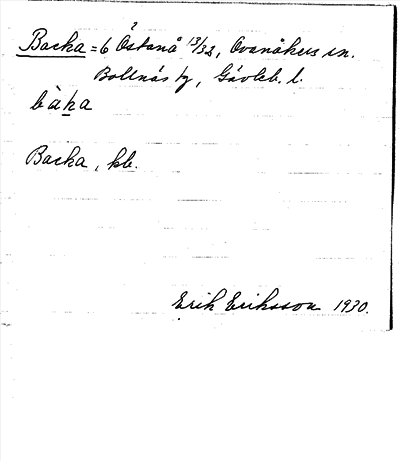 ?
Backa = 6 Östanå 13/32, Ovanåkers sn.
Bollnäs tg, Gävleb. l.
bàka
Backa, kb.
Erik Eriksson 1930.